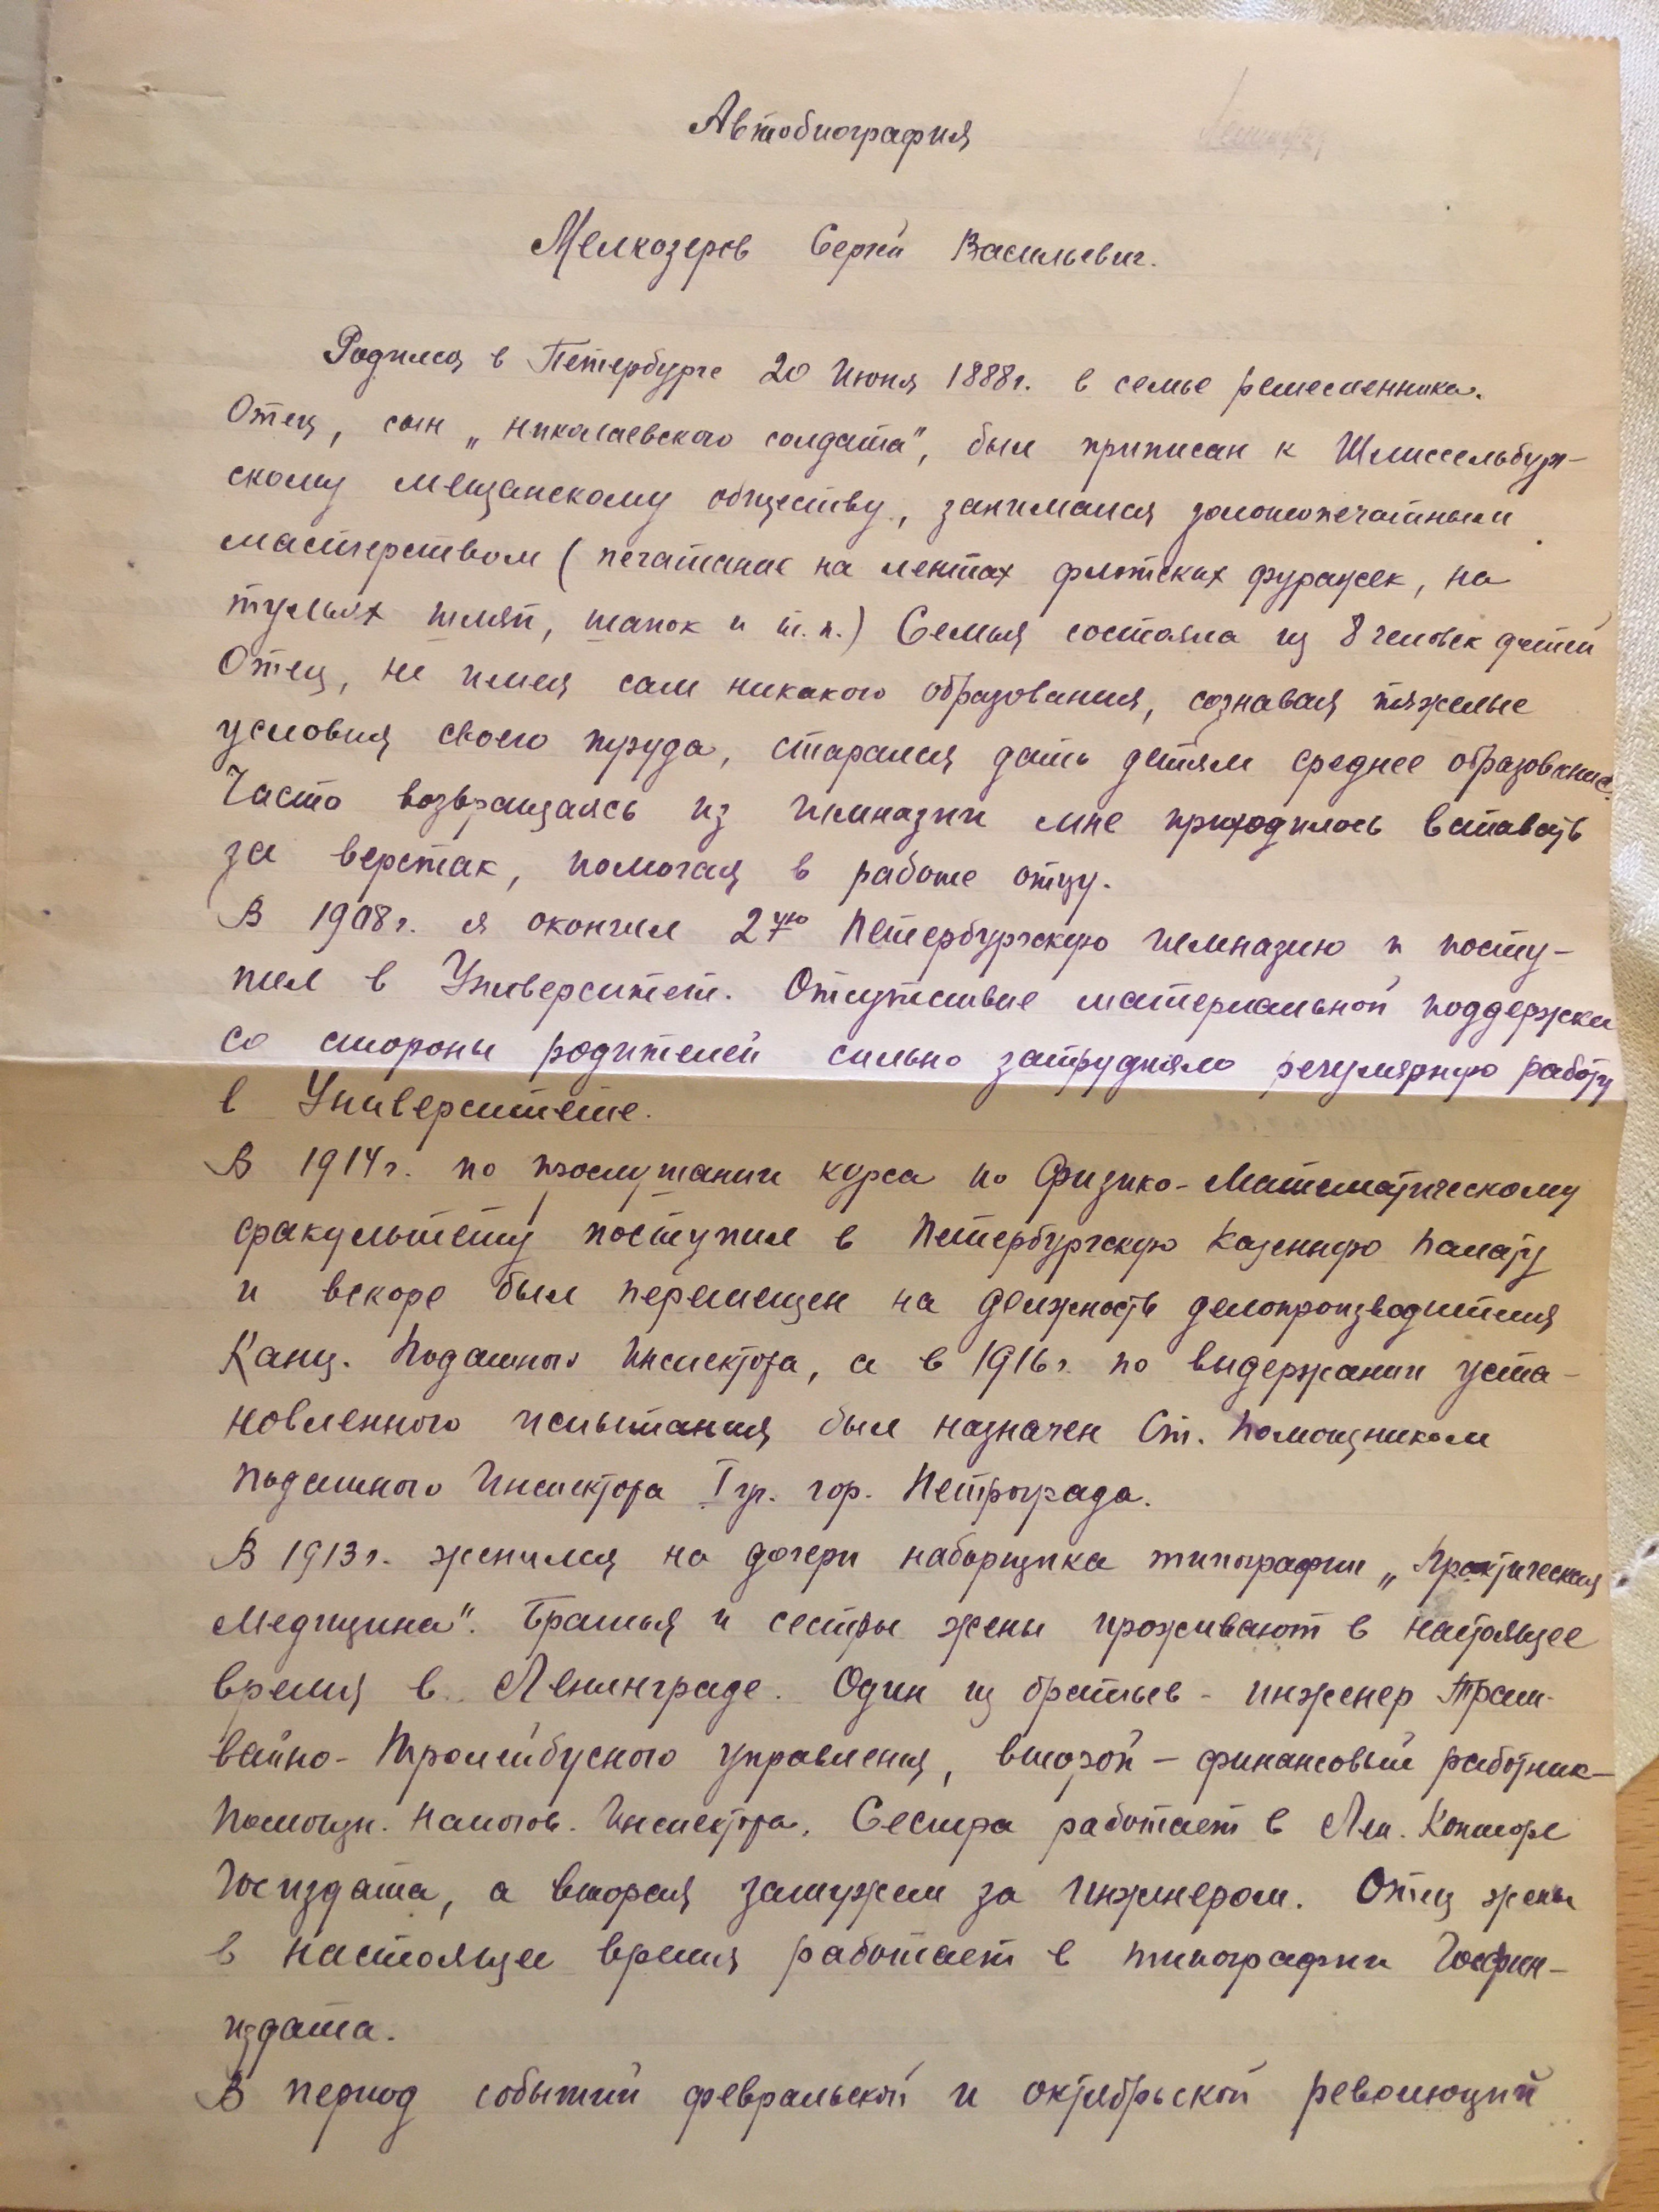 Автобиография
Мелкозеров Сергей Васильевич.
Родился в Петербурге 20 Июня 1888г. в семье ремесленника.
Отец, сын „николаевского солдата", был приписан к Шлиссельбург-
скому мещанскому обществу, занимался золотопечатным
мастерством (печатание на лентах флотских фуражек, на
тульях шляп, шапок и т.п.) Семья состояла из 8 человек детей
Отец, не имея сам никакого образования, сознавая тяжелые
условия своего труда, старался дать детям среднее образование.
Часто возвращаясь из гимназии мне приходилось вставать
за верстак, помогая в работе отцу.
В 1908г. я окончил 2ую Петербургскую гимназию и посту-
пил в Университет. Отсутствие материальной поддержки
со стороны родителей сильно затрудняло регулярную работу
в Университете.
В 1914г. по прослушании курса по Физико-Математическому
факультету поступил в Петербургскую Казенную Палату
и вскоре был перемещен на должность делопроизводителя
Канц. Податного Инспектора, а в 1916г. по выдержании уста-
новленного испытания был назначен Ст. Помощником
Податного Инспектора I гр. гор. Петрограда.
В 1913г. женился на дочери наборщика типографии „Практическая
Медицина". Братья и сестры жены проживают в настоящее
время в Ленинграде. Один из братьев - инженер Трам-
вайно-Тролейбусного управления, второй - финансовый работник-
Помощн. Налогов. Инспектора. Сестра работает в Лен. Конторе
Госиздата, а вторая замужем за инженером. Отец жены
в настоящее время работает в типографии Госфин-
издата.
В период событий февральской и октябрьской революций